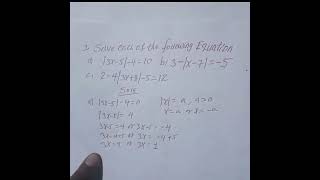 1. Solve each of the following Equation
a) |3x-5|-4=10 b) 3-|x-7|=-5
c. 2-4|3x+8|-5=12
Soln
a) |3x-5|-4=0 |x|=a, a>0
|3x-5|= 4 x=a or x=-a
3x-5=4 or 3x-5=-4
3x=4+5 or 3x = -4+5
3x=9 or 3x=1